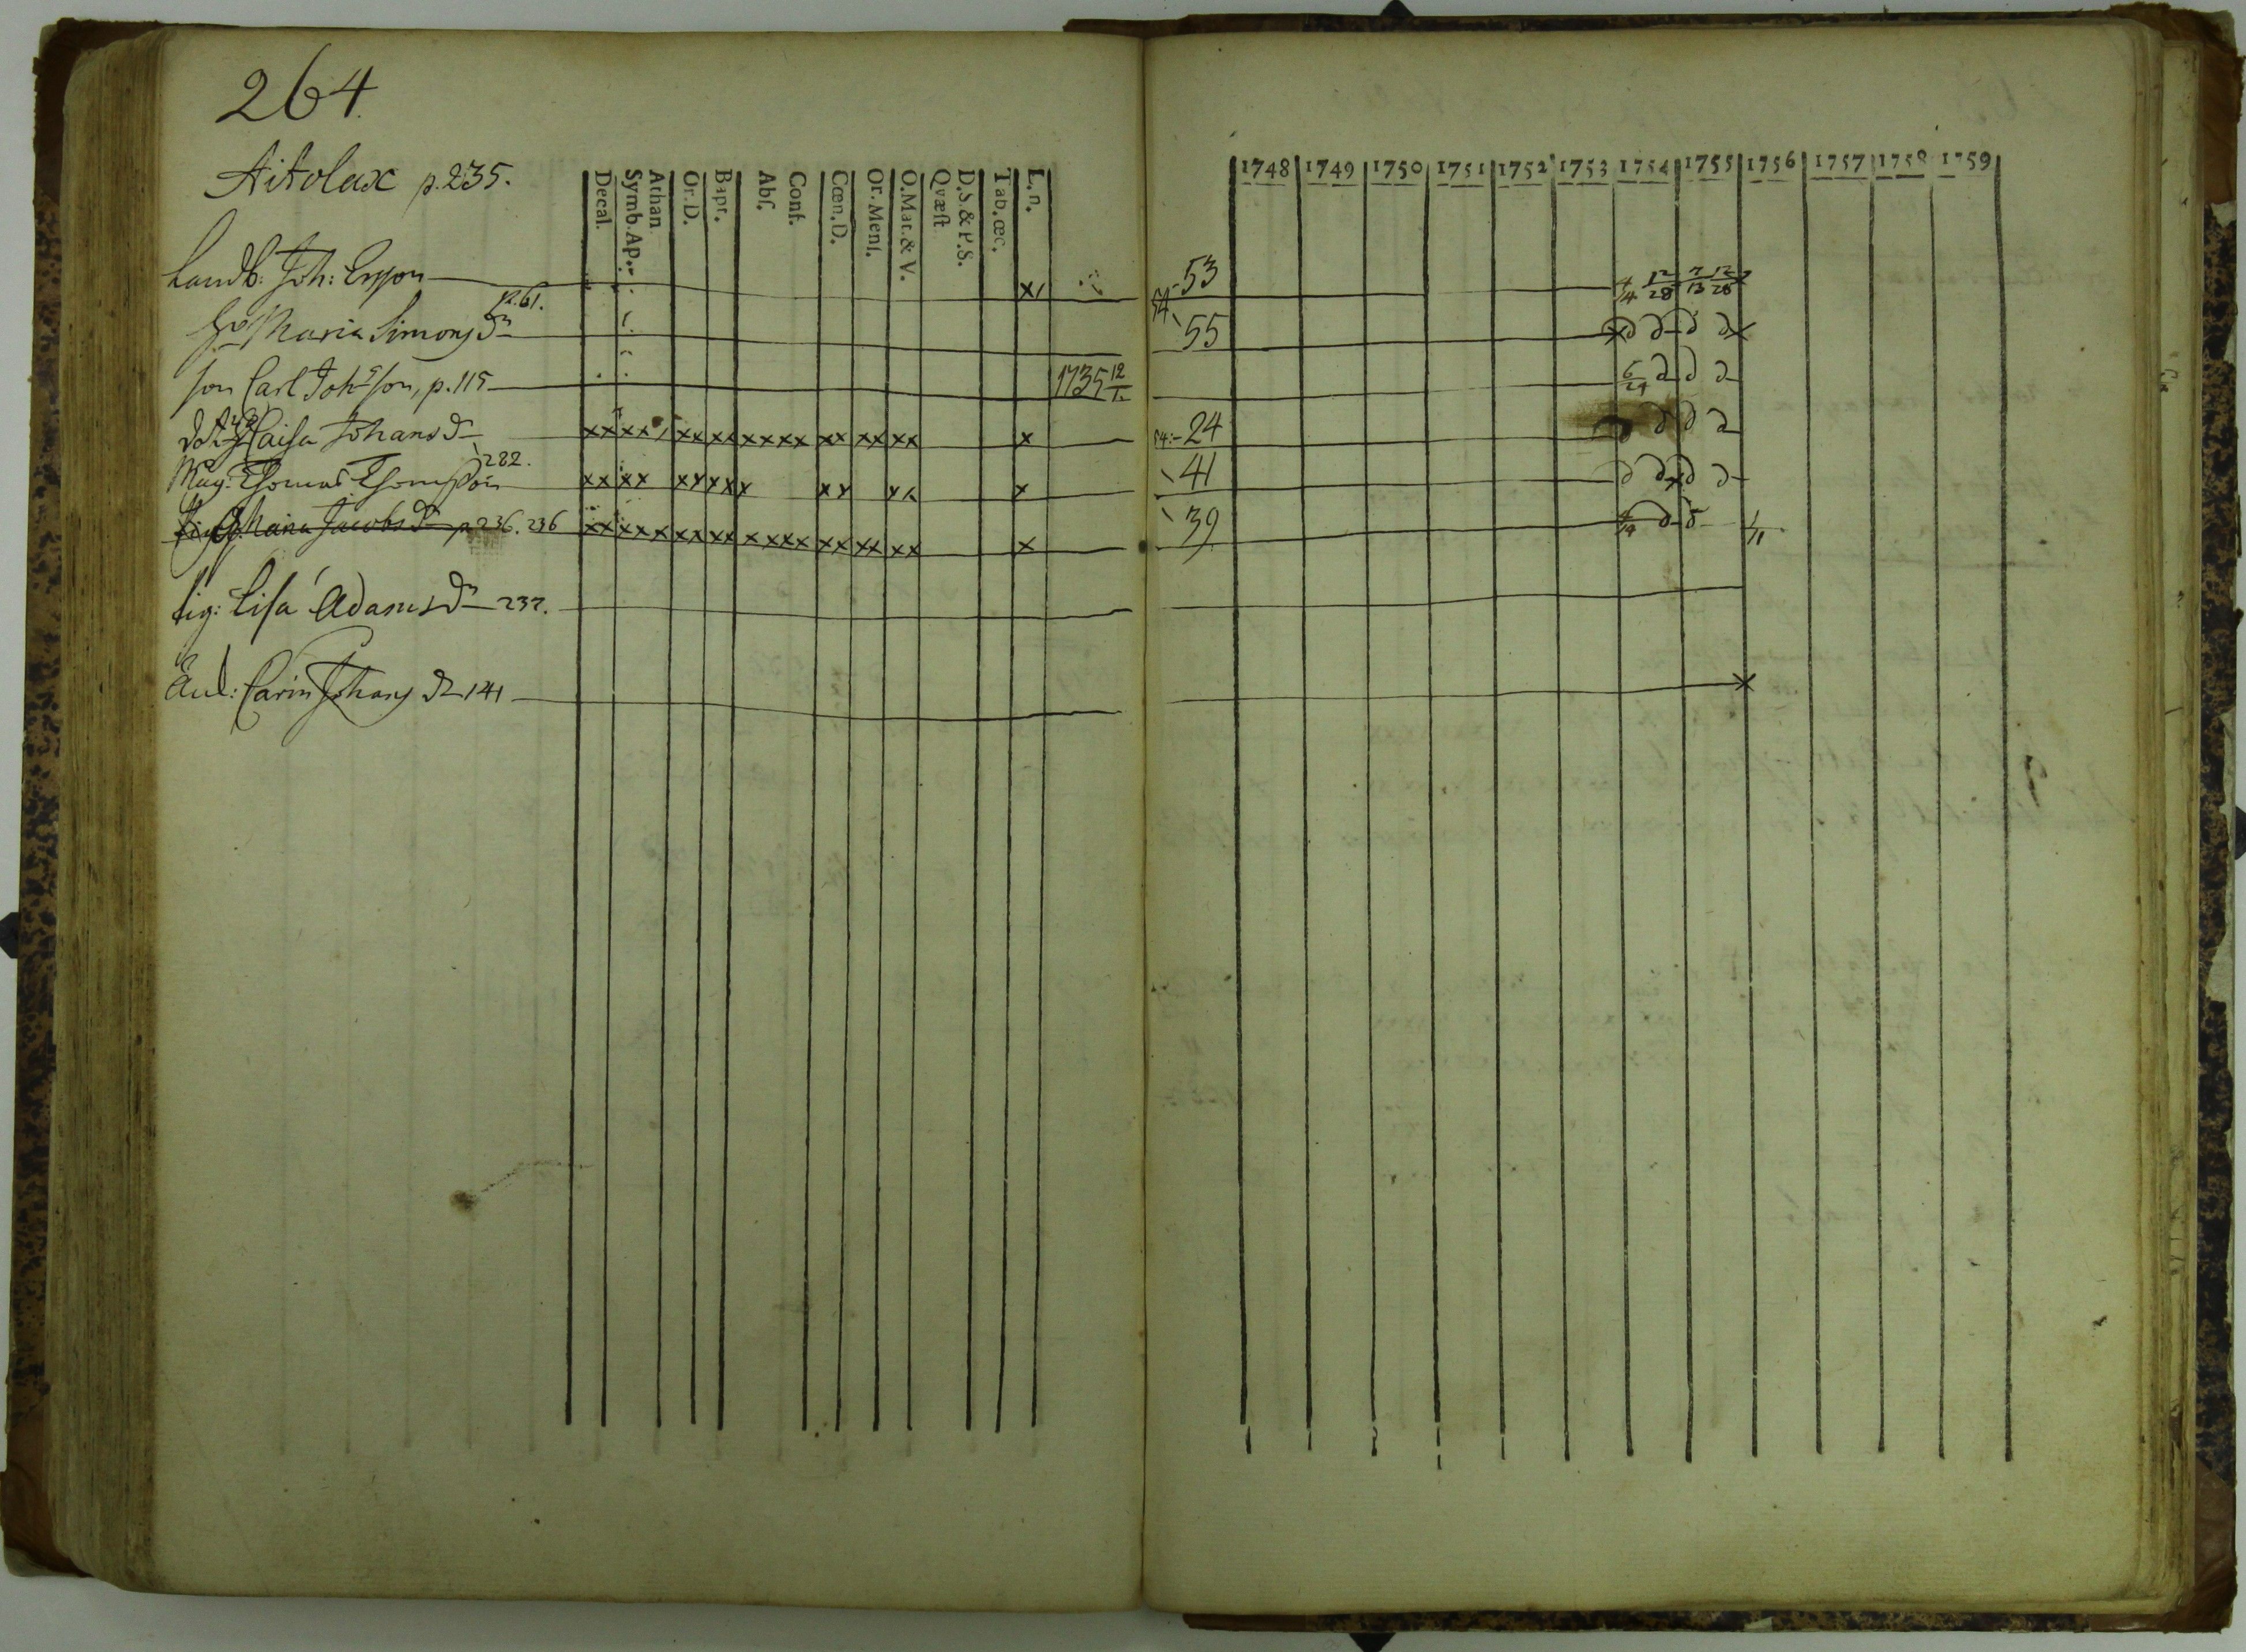 264.
Aitolax p. 235.
Decal.
Symb. Ap.
Athan
Or. D.
Bapt.
Abs.
Conf.
Cœn. D.
Or. Mens.
O. Mat. & V.
Qvæst
D.S. & P.S.
Tab. œc.
L. n.
1748 1749 1750 1751 1752 1753 1754 1755 1756 1757 1758 1759
Landb: Joh: Ersson x 53 12/28 7/13 12/28
p. 61.
Maria Simons dr 55 x d d d d x
son Carl Johsson, p. 115 1735 12/1 6/24 d d d
Caisa Johans dr xx xx xx xx xxxx xx xx xx x 24 d d d d
282.
Måg. Thomas Thomsson xx xx xx xxx xx x 41 d d d d
Maria Jacobs dr p 236. 236 xx xxx xx xx x xxx xx xx xx x 39 d
Lisa Adams dr 237.
Carin Johans dr 141 x